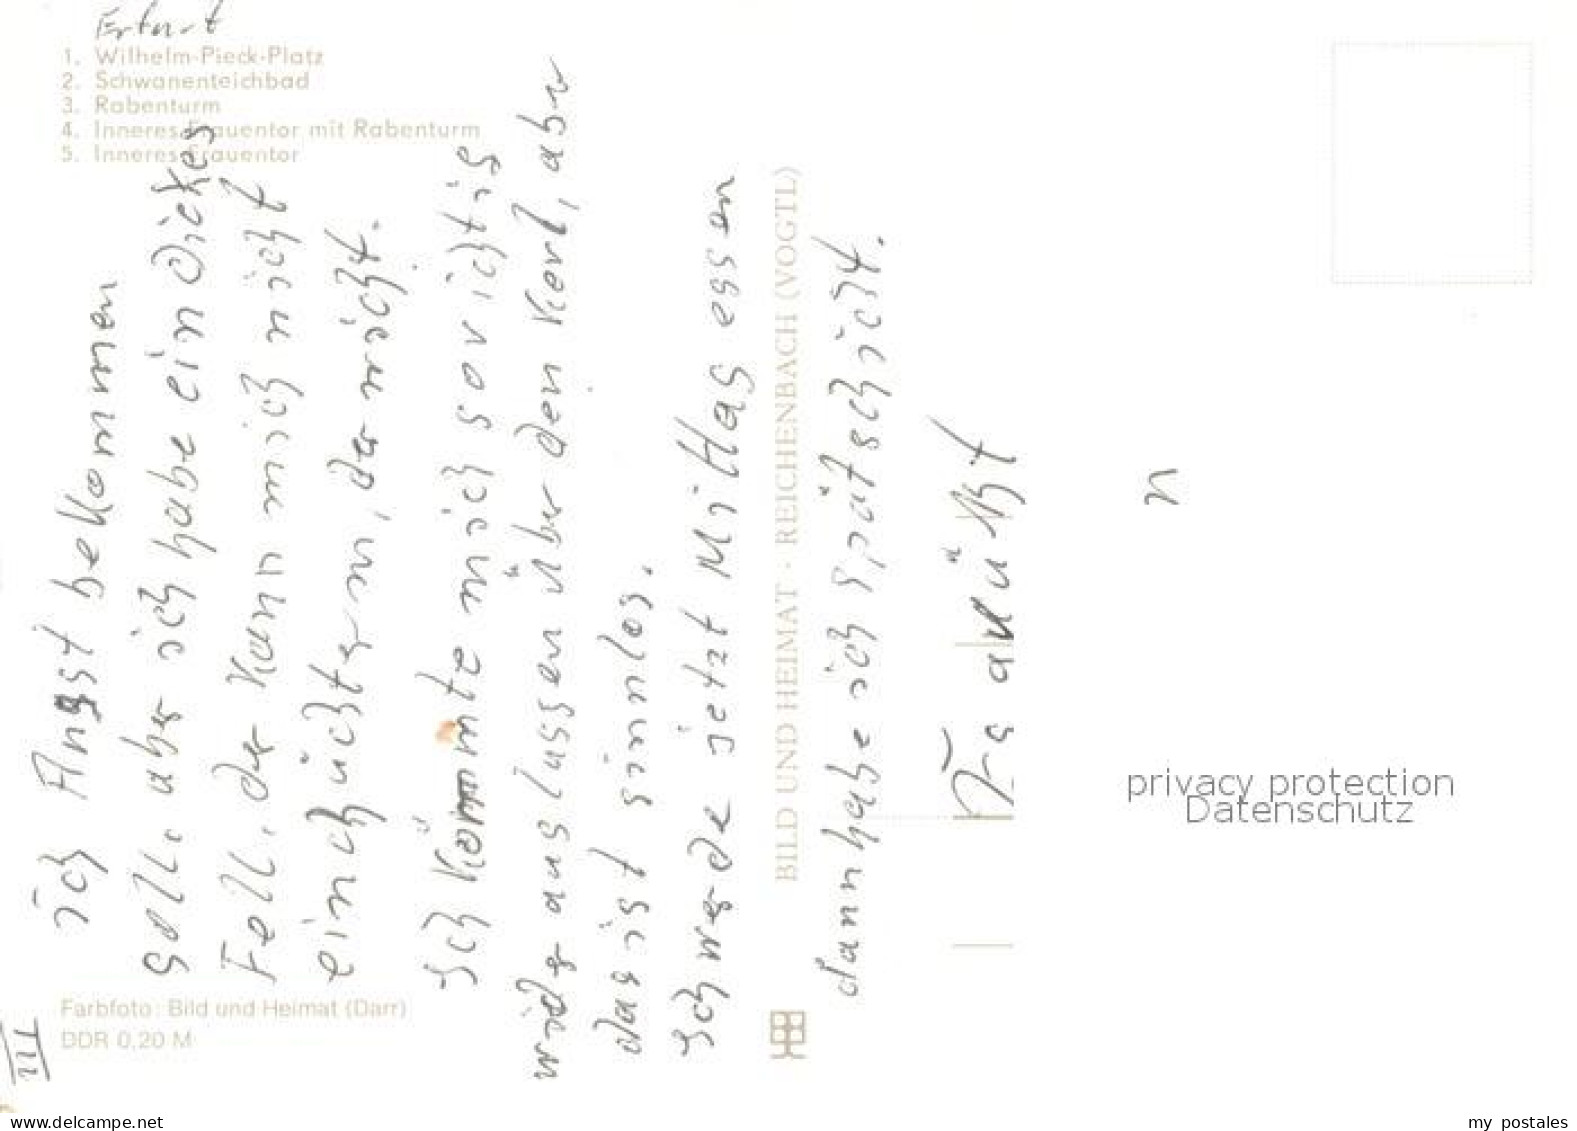 Erfurt
1. Wilhelm-Pieck-Platz
2. Schwanenteichbad
3. Rabenturm
4. Inneres Frauentor mit Rabenturm
5. Inneres Frauentor
III
ich Angst bekommen
soll, aber ich habe ein dickes
Fell, der kann mich nicht
einschüchtern, der nicht.
Ich könnte mich so richtig
wieder auslassen über den Kerl, aber
das ist sinnlos.
Ich werde jetzt Mittag essen
dann habe ich Spätschicht.
Es grüßt
n
BILD UND HEIMAT · REICHENBACH (VOGTL)
Farbfoto: Bild und Heimat (Darr)
DDR 0,20 M
privacy protection
Datenschutz
www.delcampe.net
my postales